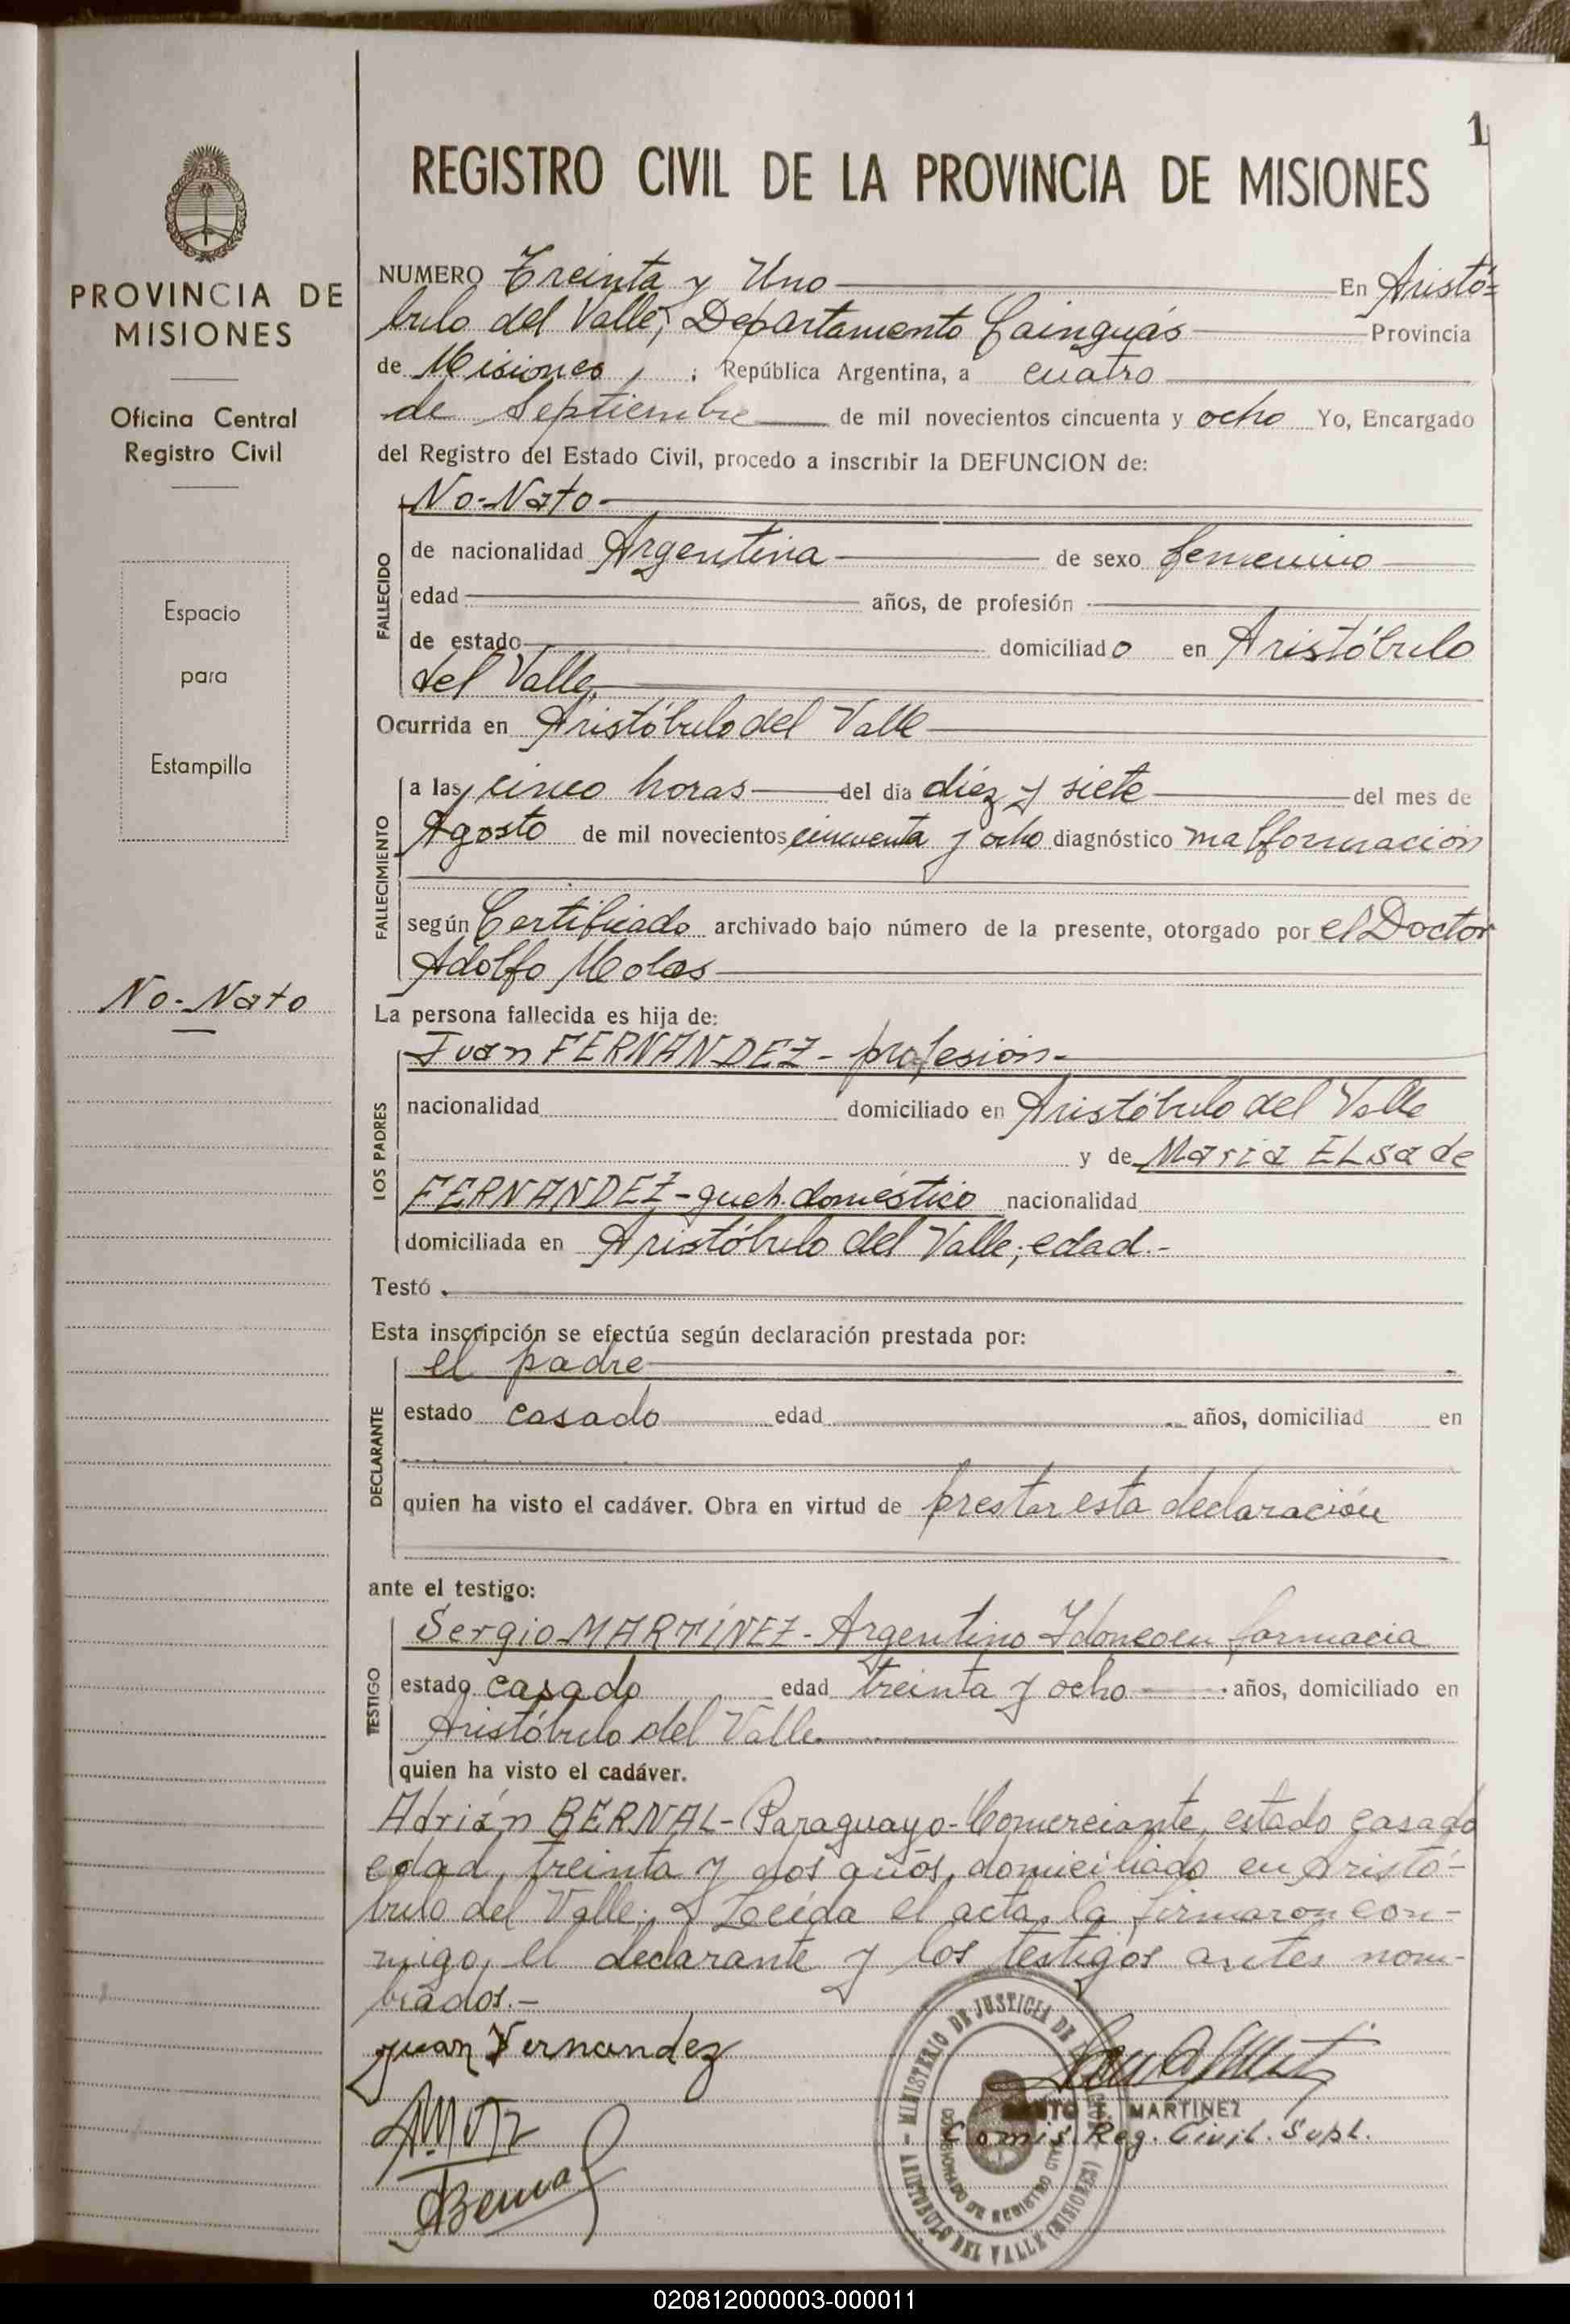 1
REGISTRO CIVIL DE LA PROVINCIA DE MISIONES
PROVINCIA DE
MISIONES
Oficina Central
Registro Civil
Espacio
para
Estampilla
No-Nato
NUMERO Treinta y Uno En Aristó=
bulo del Valle, Departamento Cainguás Provincia
de Misiones, ; República Argentina, a cuatro
de Septiembre de mil novecientos cincuenta y ocho Yo, Encargado
del Registro del Estado Civil, procedo a inscribir la DEFUNCION de:
FALLECIDO
No-Nato
de nacionalidad Argentina de sexo femenino
edad años, de profesión
de estado domiciliado en Aristóbulo
del Valle
Ocurrida en Aristóbulo del Valle
FALLECIMIENTO
a las cinco horas del dia diez y siete del mes de
Agosto de mil novecientos cincuenta y ocho diagnóstico malformación
según Certificado archivado bajo número de la presente, otorgado por el Doctor
Adolfo Molas
La persona fallecida es hija de:
LOS PADRES
Juan FERNANDEZ - profesión-
nacionalidad domiciliado en Aristóbulo del Valle
y de Maria ELsa de
FERNANDEZ - queh. doméstico nacionalidad
domiciliada en Aristóbulo del Valle; edad.-
Testó .
Esta inscripción se efectúa según declaración prestada por:
DECLARANTE
el padre
estado casado edad años, domiciliad en
quien ha visto el cadáver. Obra en virtud de prestar esta declaración
ante el testigo:
TESTIGO
Sergio MARTÍNEZ - Argentino Idoneo en farmacia
estado casado edad treinta y ocho años, domiciliado en
Aristóbulo del Valle
quien ha visto el cadáver.
Adrián BERNAL - Paraguayo - Comerciante, estado casado
edad, treinta y dos años, domiciliado en Aristó-
bulo del Valle; Leída el acta, la firmaron con-
migo, el declarante y los testigos antes nom-
brados.-
Juan Fernandez
ABernal
MARTINEZ
Comis. Reg. Civil. Supl.
MINISTERIO DE JUSTICIA DE
ARISTOBULO DEL VALLE (MISIONES)
DE REGISTRO CIVIL
020812000003-000011